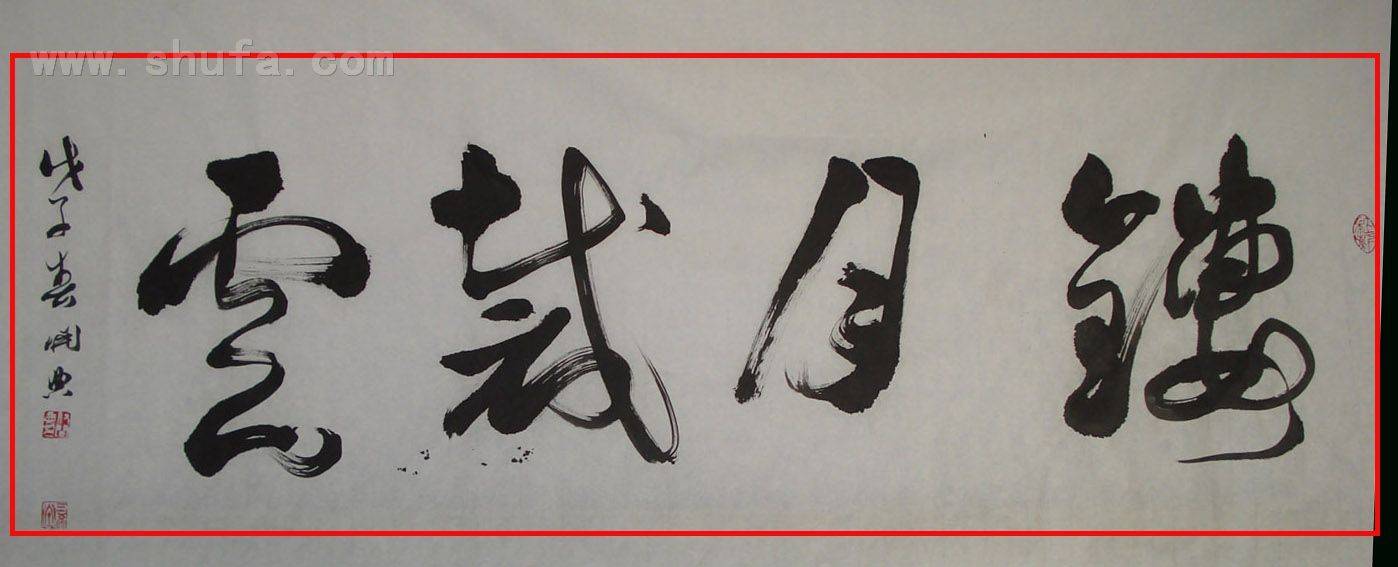 www.shufa.com
鏤月裁雲
戊子春開典